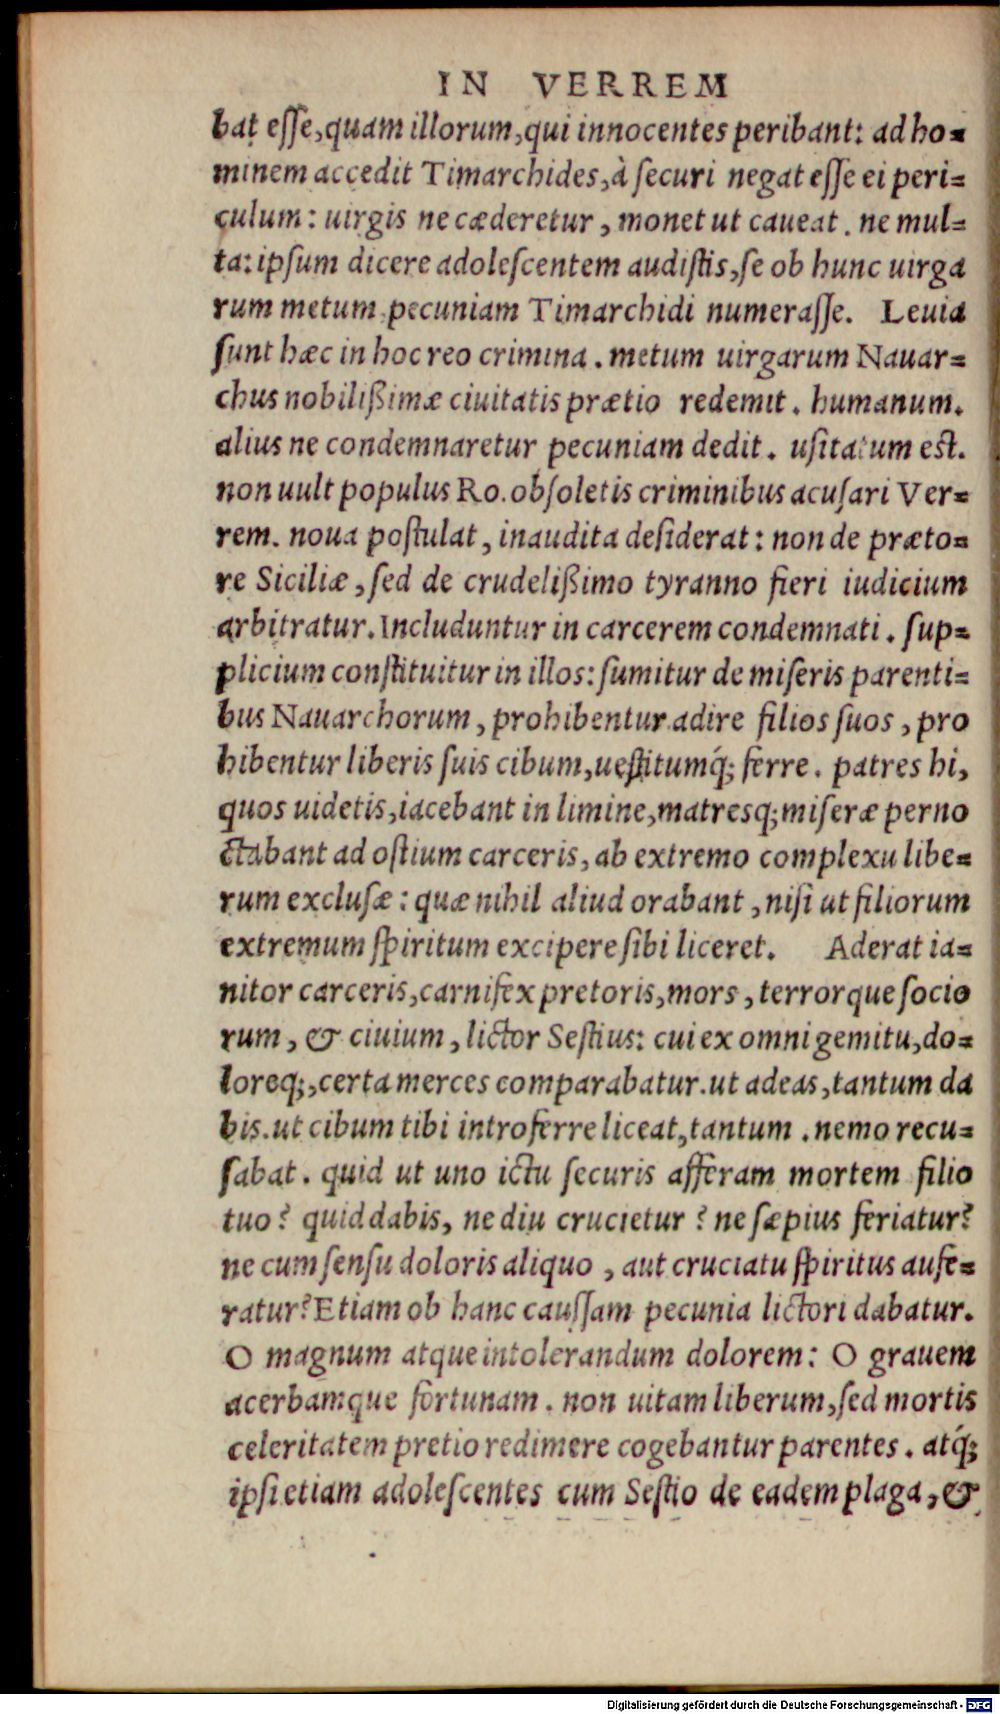 IN VERREM
bat esse, quam illorum, qui innocentes peribant: ad ho=
minem accedit Timarchides, à securi negat esse ei peri=
culum: uirgis ne cæderetur, monet ut caueat. ne mul=
ta: ipsum dicere adolescentem audistis, se ob hunc uirga
rum metum pecuniam Timarchidi numerasse. Leuia
sunt hæc in hoc reo crimina. metum uirgarum Nauar=
chus nobilißimæ ciuitatis prætio redemit. humanum.
alius ne condemnaretur pecuniam dedit. usitatum est.
non uult populus Ro. obsoletis criminibus acusari Ver=
rem. noua postulat, inaudita desiderat: non de præto=
re Siciliæ, sed de crudelißimo tyranno fieri iudicium
arbitratur. Includuntur in carcerem condemnati. sup=
plicium constituitur in illos: sumitur de miseris parenti=
bus Nauarchorum, prohibentur adire filios suos, pro
hibentur liberis suis cibum, uestitumq́; ferre. patres hi,
quos uidetis, iacebant in limine, matresq; miseræ perno
ctabant ad ostium carceris, ab extremo complexu libe=
rum exclusæ: quæ nihil aliud orabant, nisi ut filiorum
extremum spiritum excipere sibi liceret. Aderat ia=
nitor carceris, carnifex pretoris, mors, terrorque socio
rum, & ciuium, lictor Sestius: cui ex omni gemitu, do=
loreq;, certa merces comparabatur. ut adeas, tantum da
bis. ut cibum tibi introferre liceat, tantum. nemo recu=
sabat. quid ut uno ictu securis afferam mortem filio
tuo? quid dabis, ne diu crucietur? ne sæpius feriatur?
ne cum sensu doloris aliquo, aut cruciatu spiritus aufe=
ratur? Etiam ob hanc caussam pecunia lictori dabatur.
O magnum atque intolerandum dolorem: O grauem
acerbamque fortunam. non uitam liberum, sed mortis
celeritatem pretio redimere cogebantur parentes. atq́;
ipsi etiam adolescentes cum Sestio de eadem plaga, &
Digitalisierung gefördert durch die Deutsche Forschungsgemeinschaft - DFG